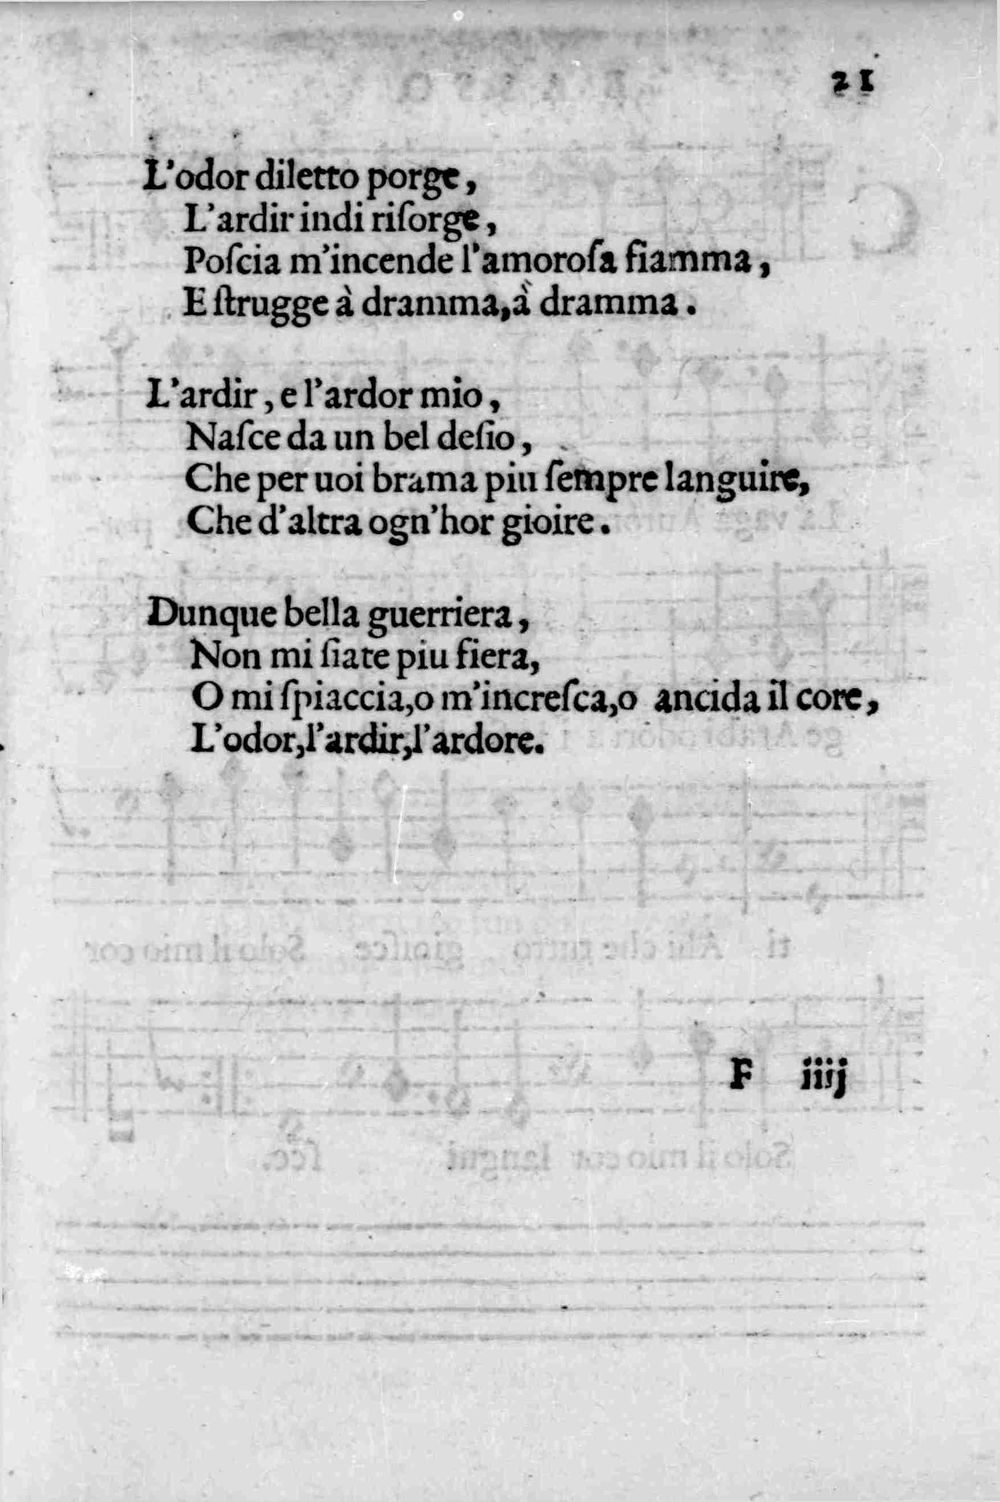 21
L'odor diletto porge,
L'ardir indi riſorge,
Poſcia m'incende l'amoroſa fiamma,
E ſtrugge à dramma, à dramma.
L'ardir, e l'ardor mio,
Naſce da un bel deſio,
Che per uoi brama piu ſempre languire,
Che d'altra ogn'hor gioire.
Dunque bella guerriera,
Non mi ſiate piu fiera,
O mi ſpiaccia, o m'increſca, o ancida il core,
L'odor, l'ardir, l'ardore.
F iiij